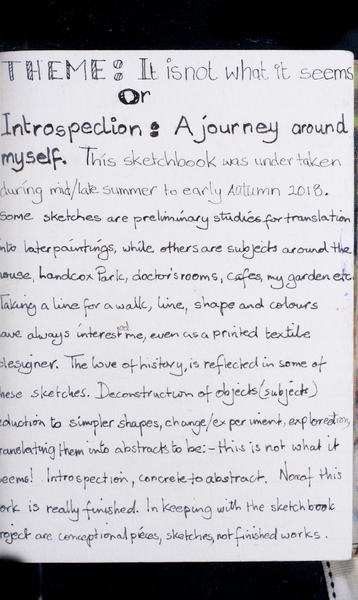 THEME: It is not what it seems
Or
Introspection: A journey around
myself. This sketchbook was undertaken
during mid/late summer to early Autumn 2018.
Some sketches are preliminary studies for translation
into later paintings, while others are subjects around the
house, Handcox Park, doctor's rooms, cafes, my garden etc.
Taking a line for a walk, line, shape and colours
ave always interested me, even as a printed textile
designer. The love of history, is reflected in some of
hese sketches. Deconstruction of objects (subjects)
eduction to simpler shapes, change/experiment, exploration,
ranslating them into abstracts to be:- this is not what it
eems! Introspection, concrete to abstract. Non of this
ork is really finished. In keeping with the sketchbook
roject are conceptional pieces, sketches, not finished works.